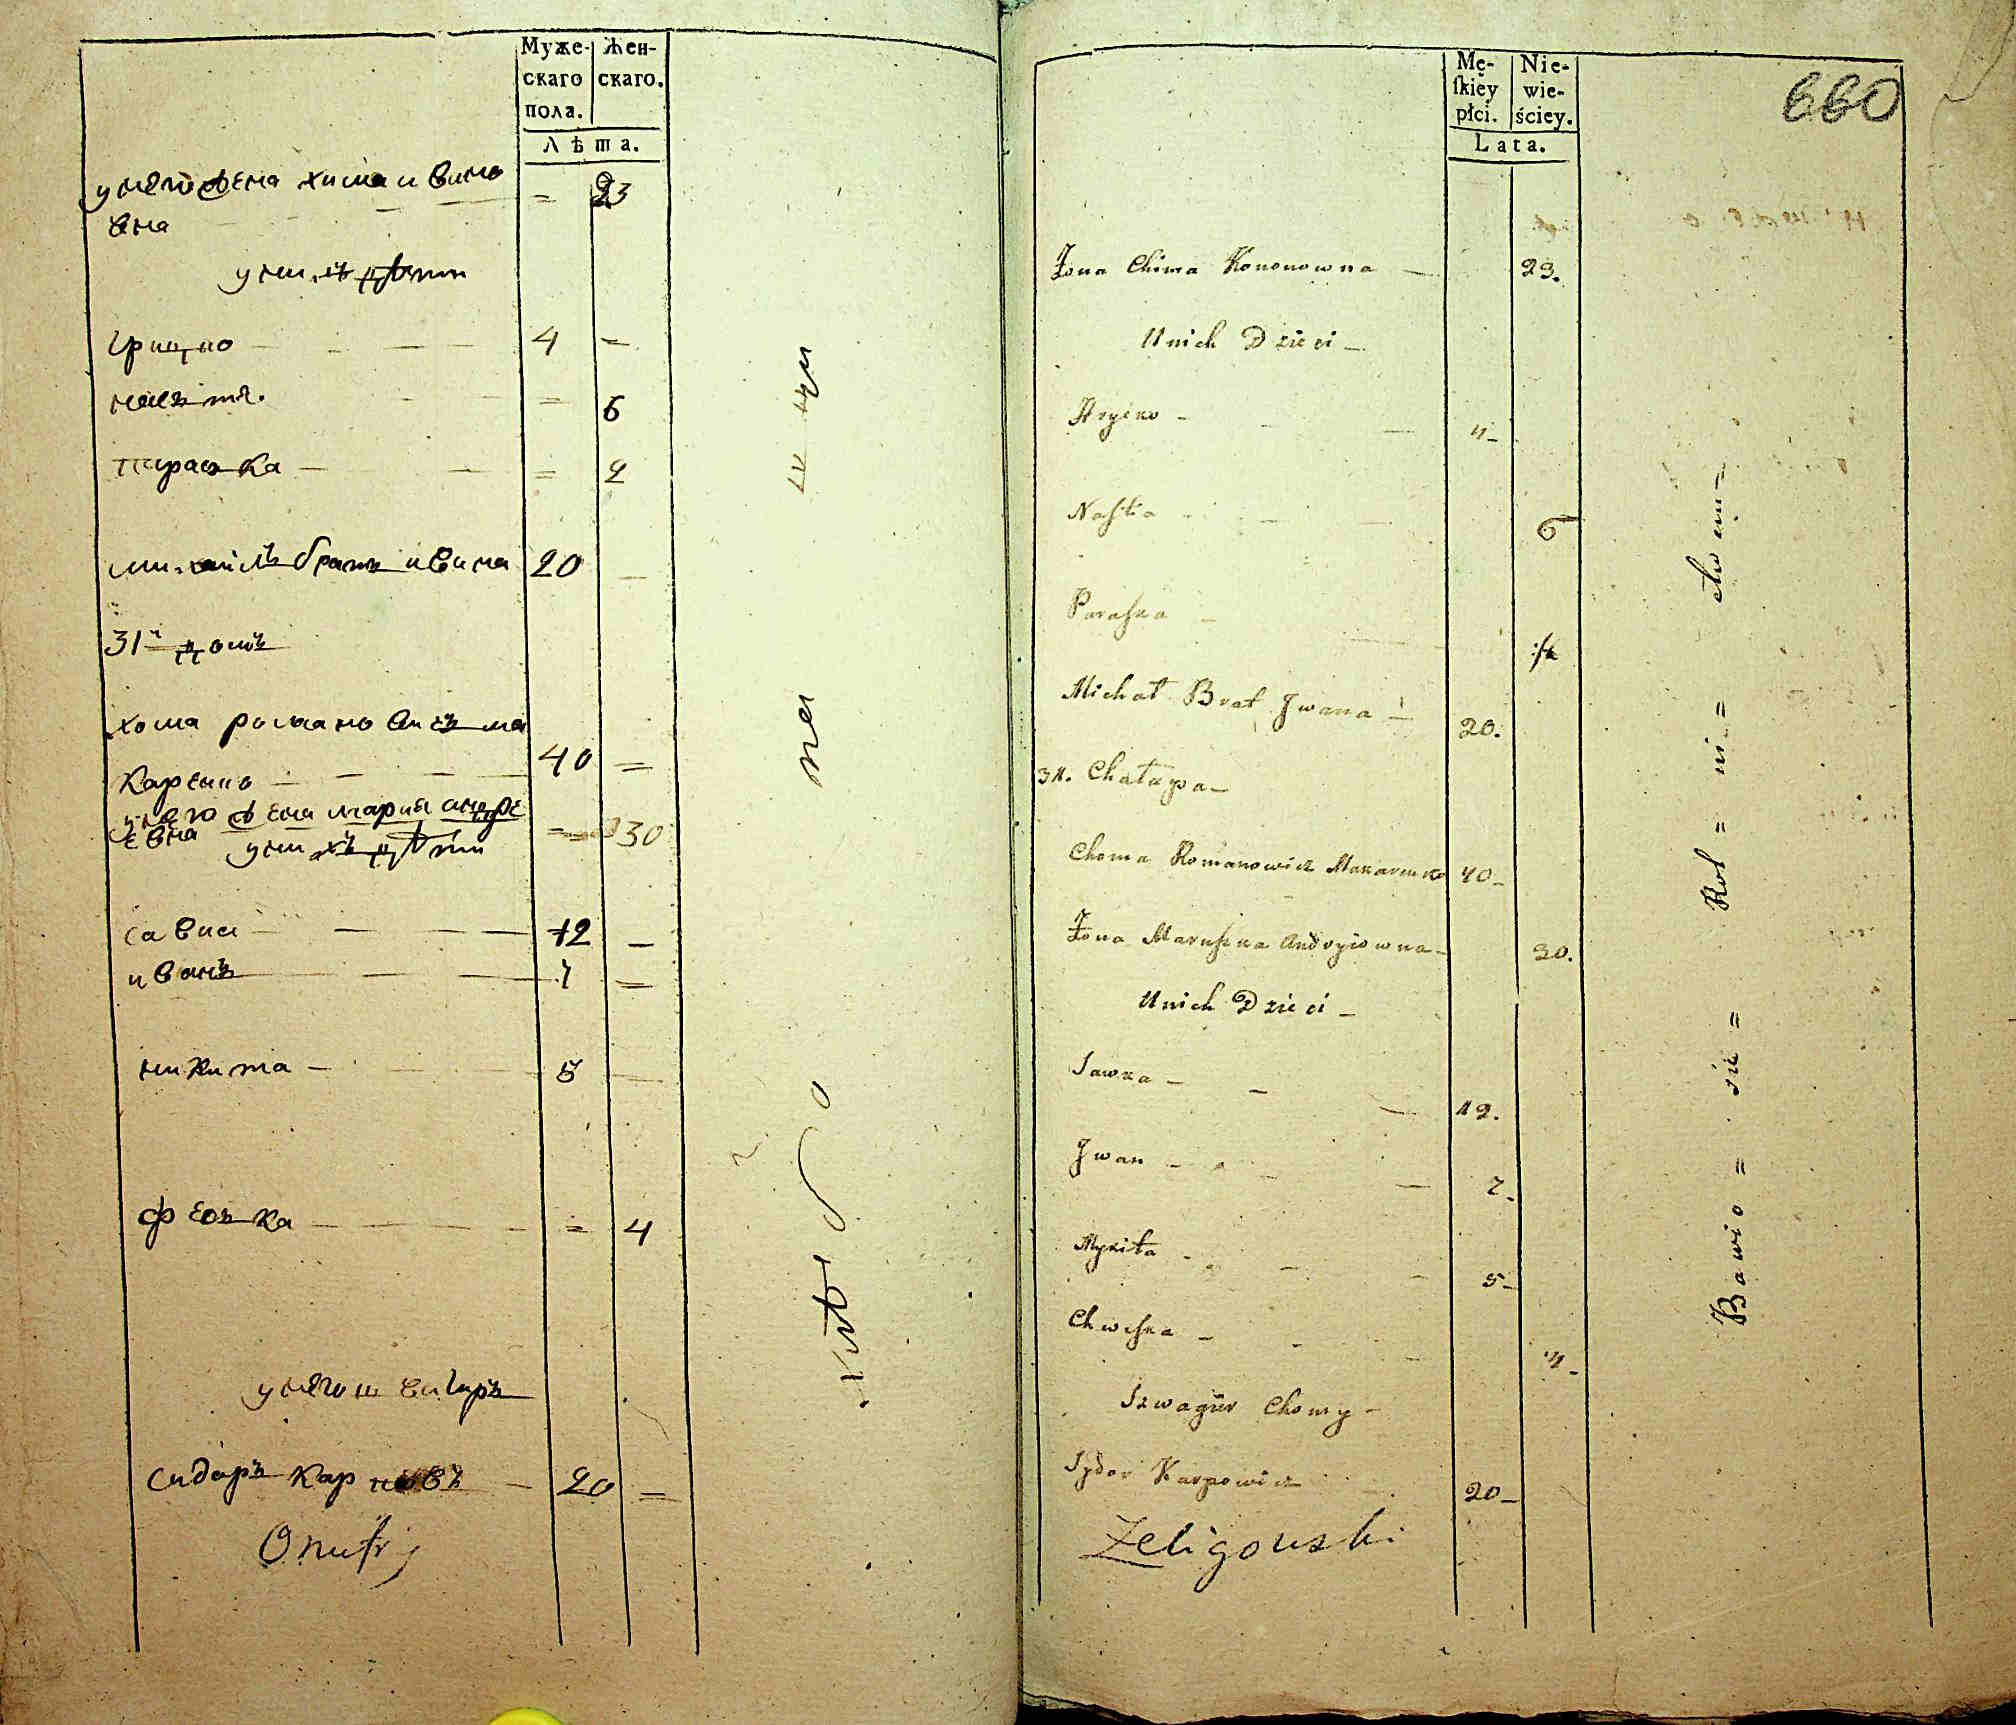 Муже-
скаго
пола.
Жен-
скаго.
Лѣта.
23
вна
у нихъ дѣти
Грицко 4 —
Настя = 6
Параска = 2
Михайлъ братъ ивана 20 —
31й домъ
хома романовичъ ма
каренко 40 =
у него жена мария андре
евна = 30
у нихъ дѣти
савка 12 —
иванъ 7 =
никита 5 —
феська = 4
у него швагиръ
сидоръ карповъ 20 =
Onufry
Mę-
ſkiey
płci.
Nie-
wie-
ściey.
Lata.
660
Żona Chima Kononowna — 23.
Unich Dzieci —
Hrycko — 4 —
Nastia — 6
Paraska —
Michał Brat Jwana — 20.
31. Chałupa —
Choma Romanowicz Makarenko 40 —
Żona Maruszka Andryiowna — 30.
Unich Dzieci —
Sawka — 12.
Jwan — 7 —
Mykita — 5 —
Chweska — 4 —
Szwagier Chomy —
Sydor Karpowicz 20 —
Żeligowski